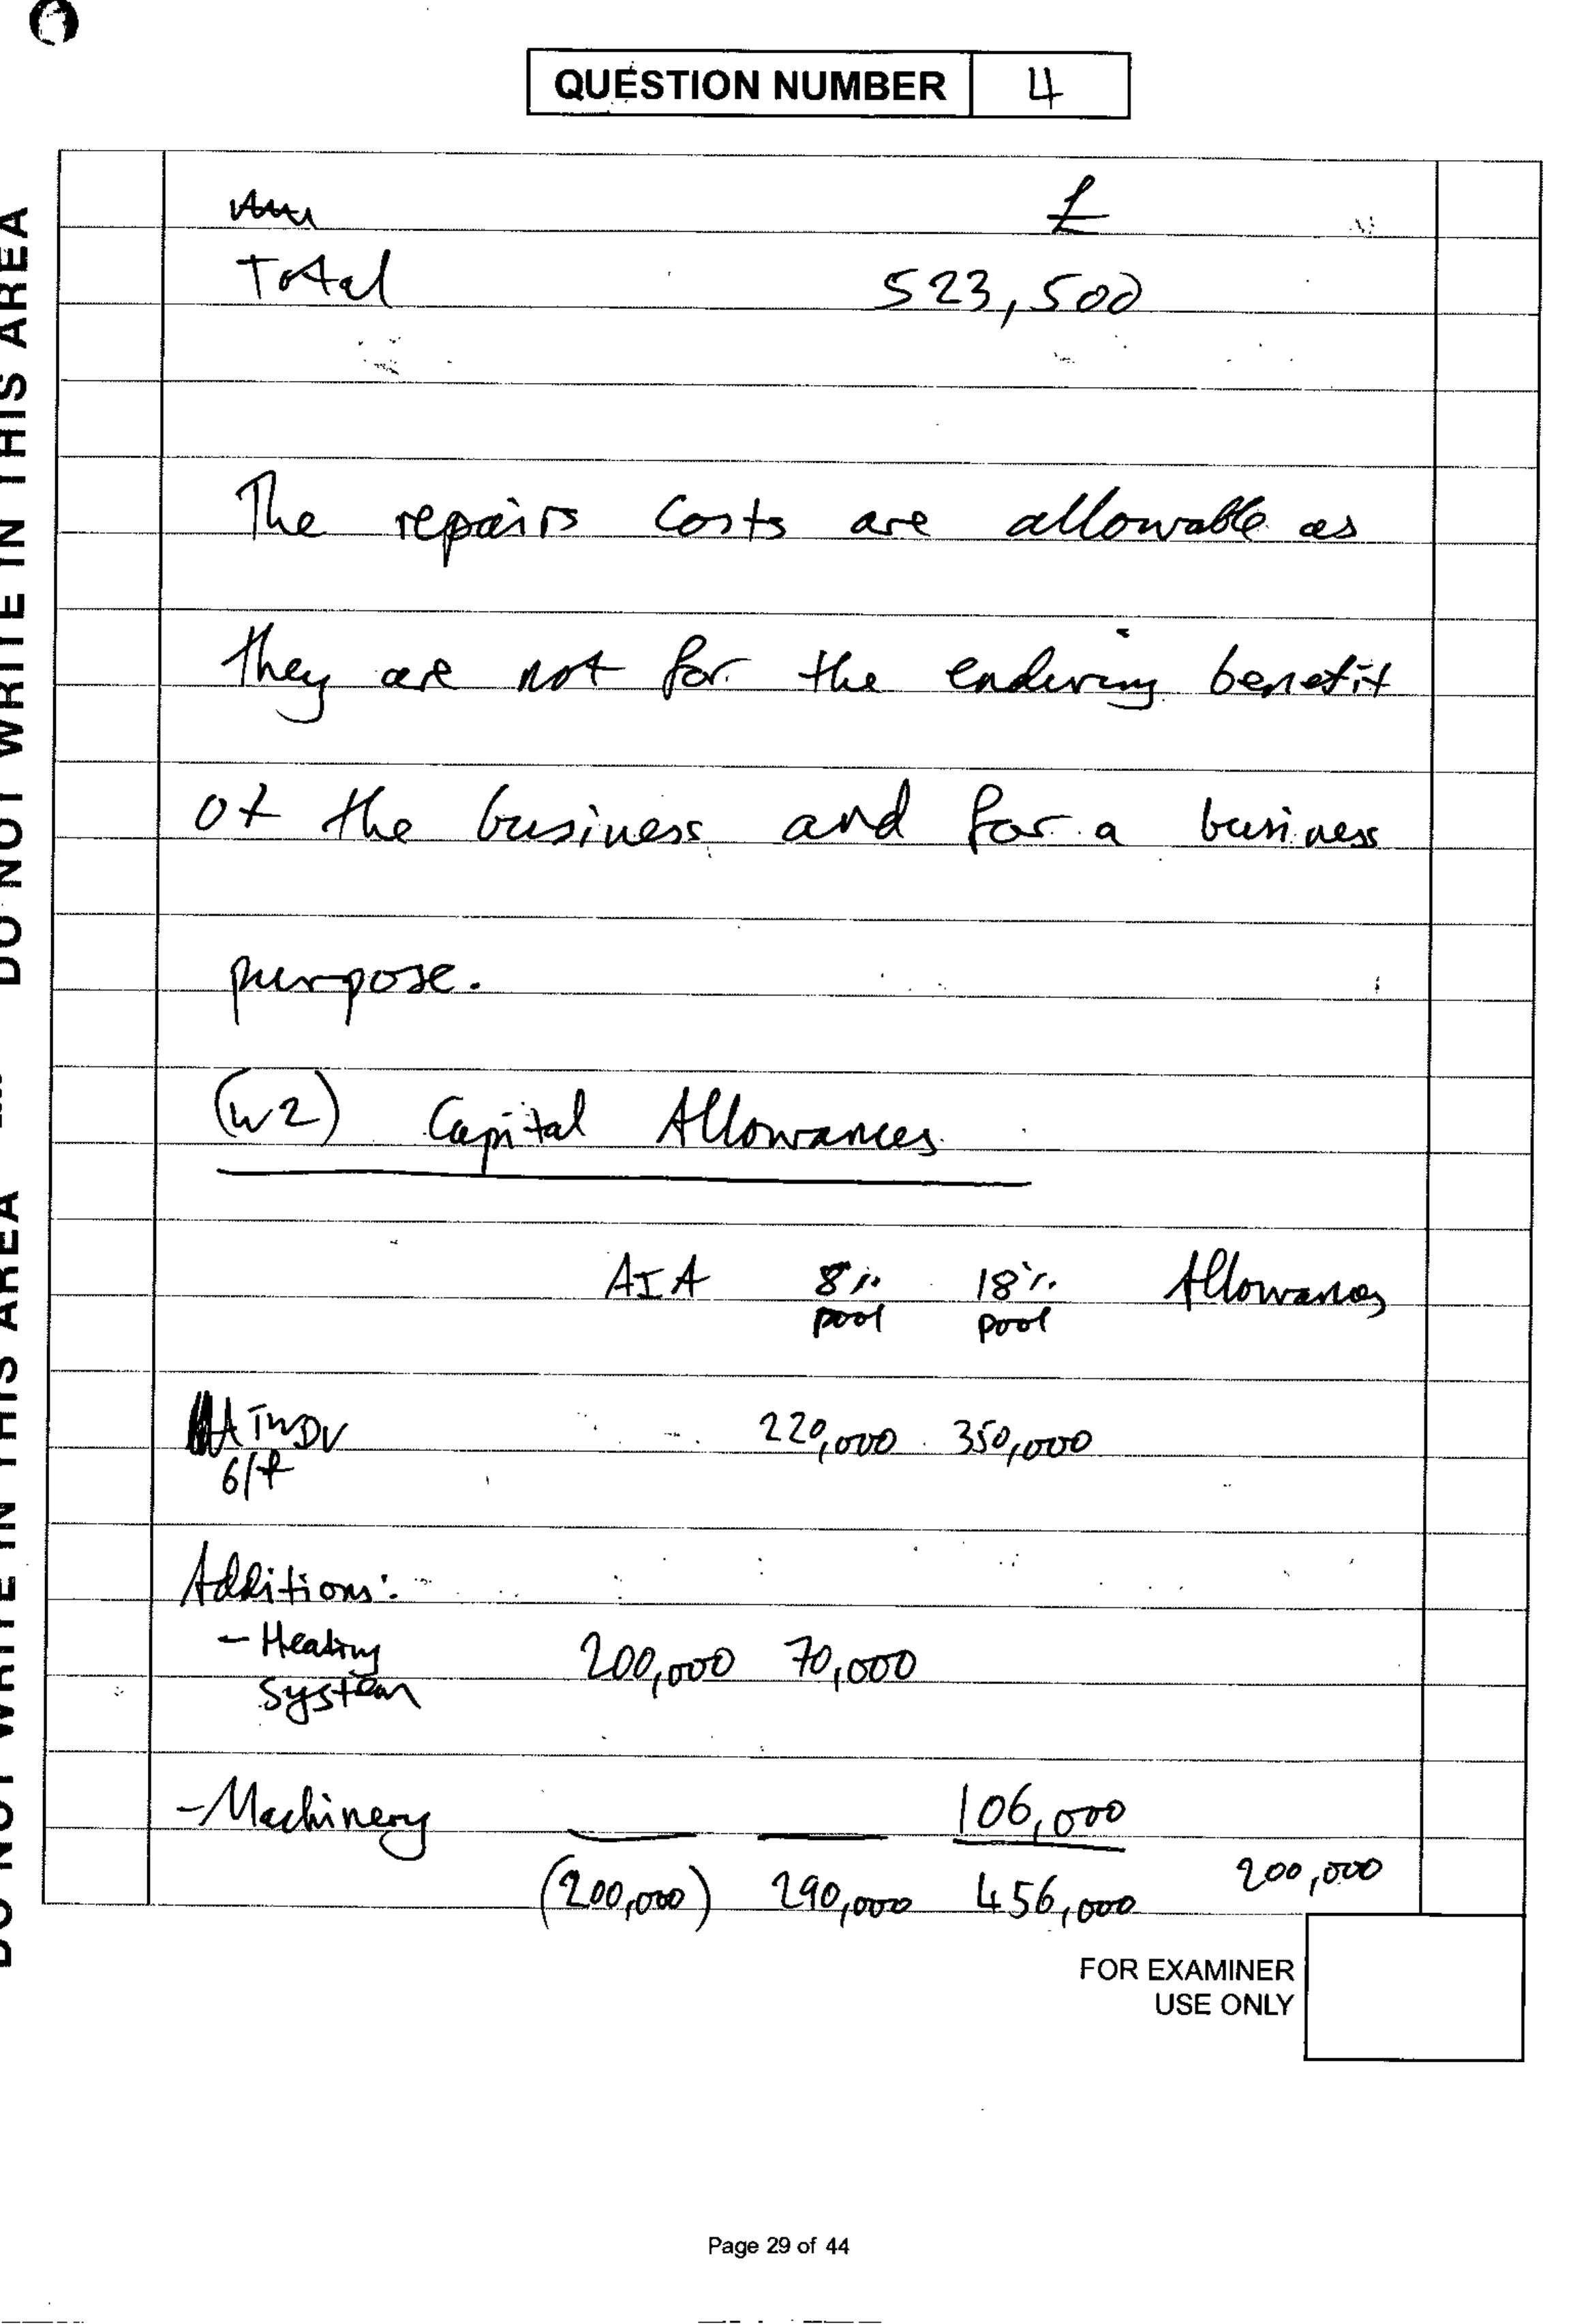 QUESTION NUMBER 4
£
Total 523,500
The repairs costs are allowable as
they are not for the enduring benefit
of the business and for a business
purpose.
(W2) Capital Allowances
AIA 8% pool 18% pool Allowances
TWDV b/f 220,000 350,000
Additions:
- Heating System 200,000 70,000
- Machinery 106,000
(200,000) 290,000 456,000 200,000
FOR EXAMINER
USE ONLY
Page 29 of 44
DO NOT WRITE IN THIS AREA
DO NOT WRITE IN THIS AREA